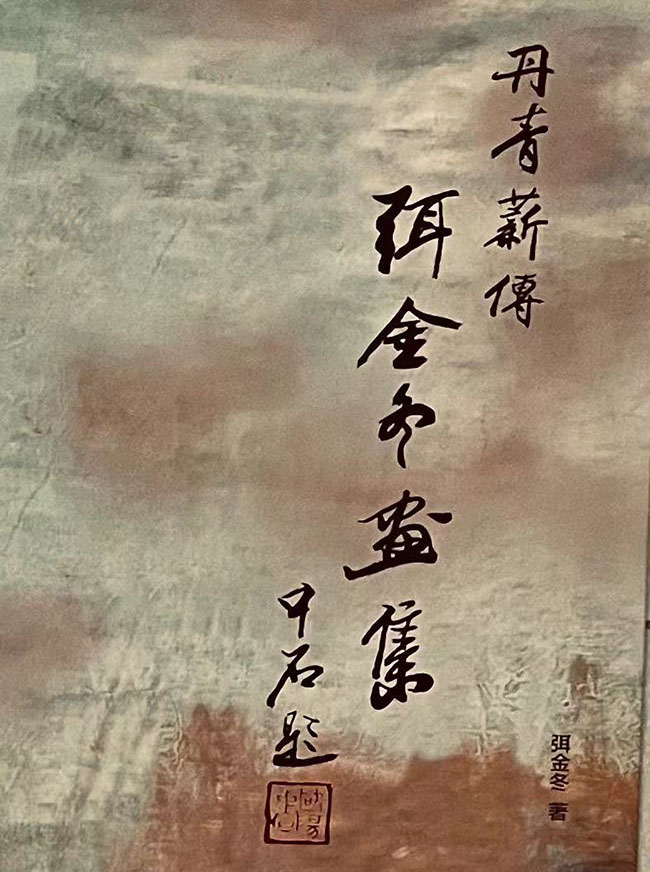 丹青薪傳
弭金冬畫集
中石題
弭金冬 著